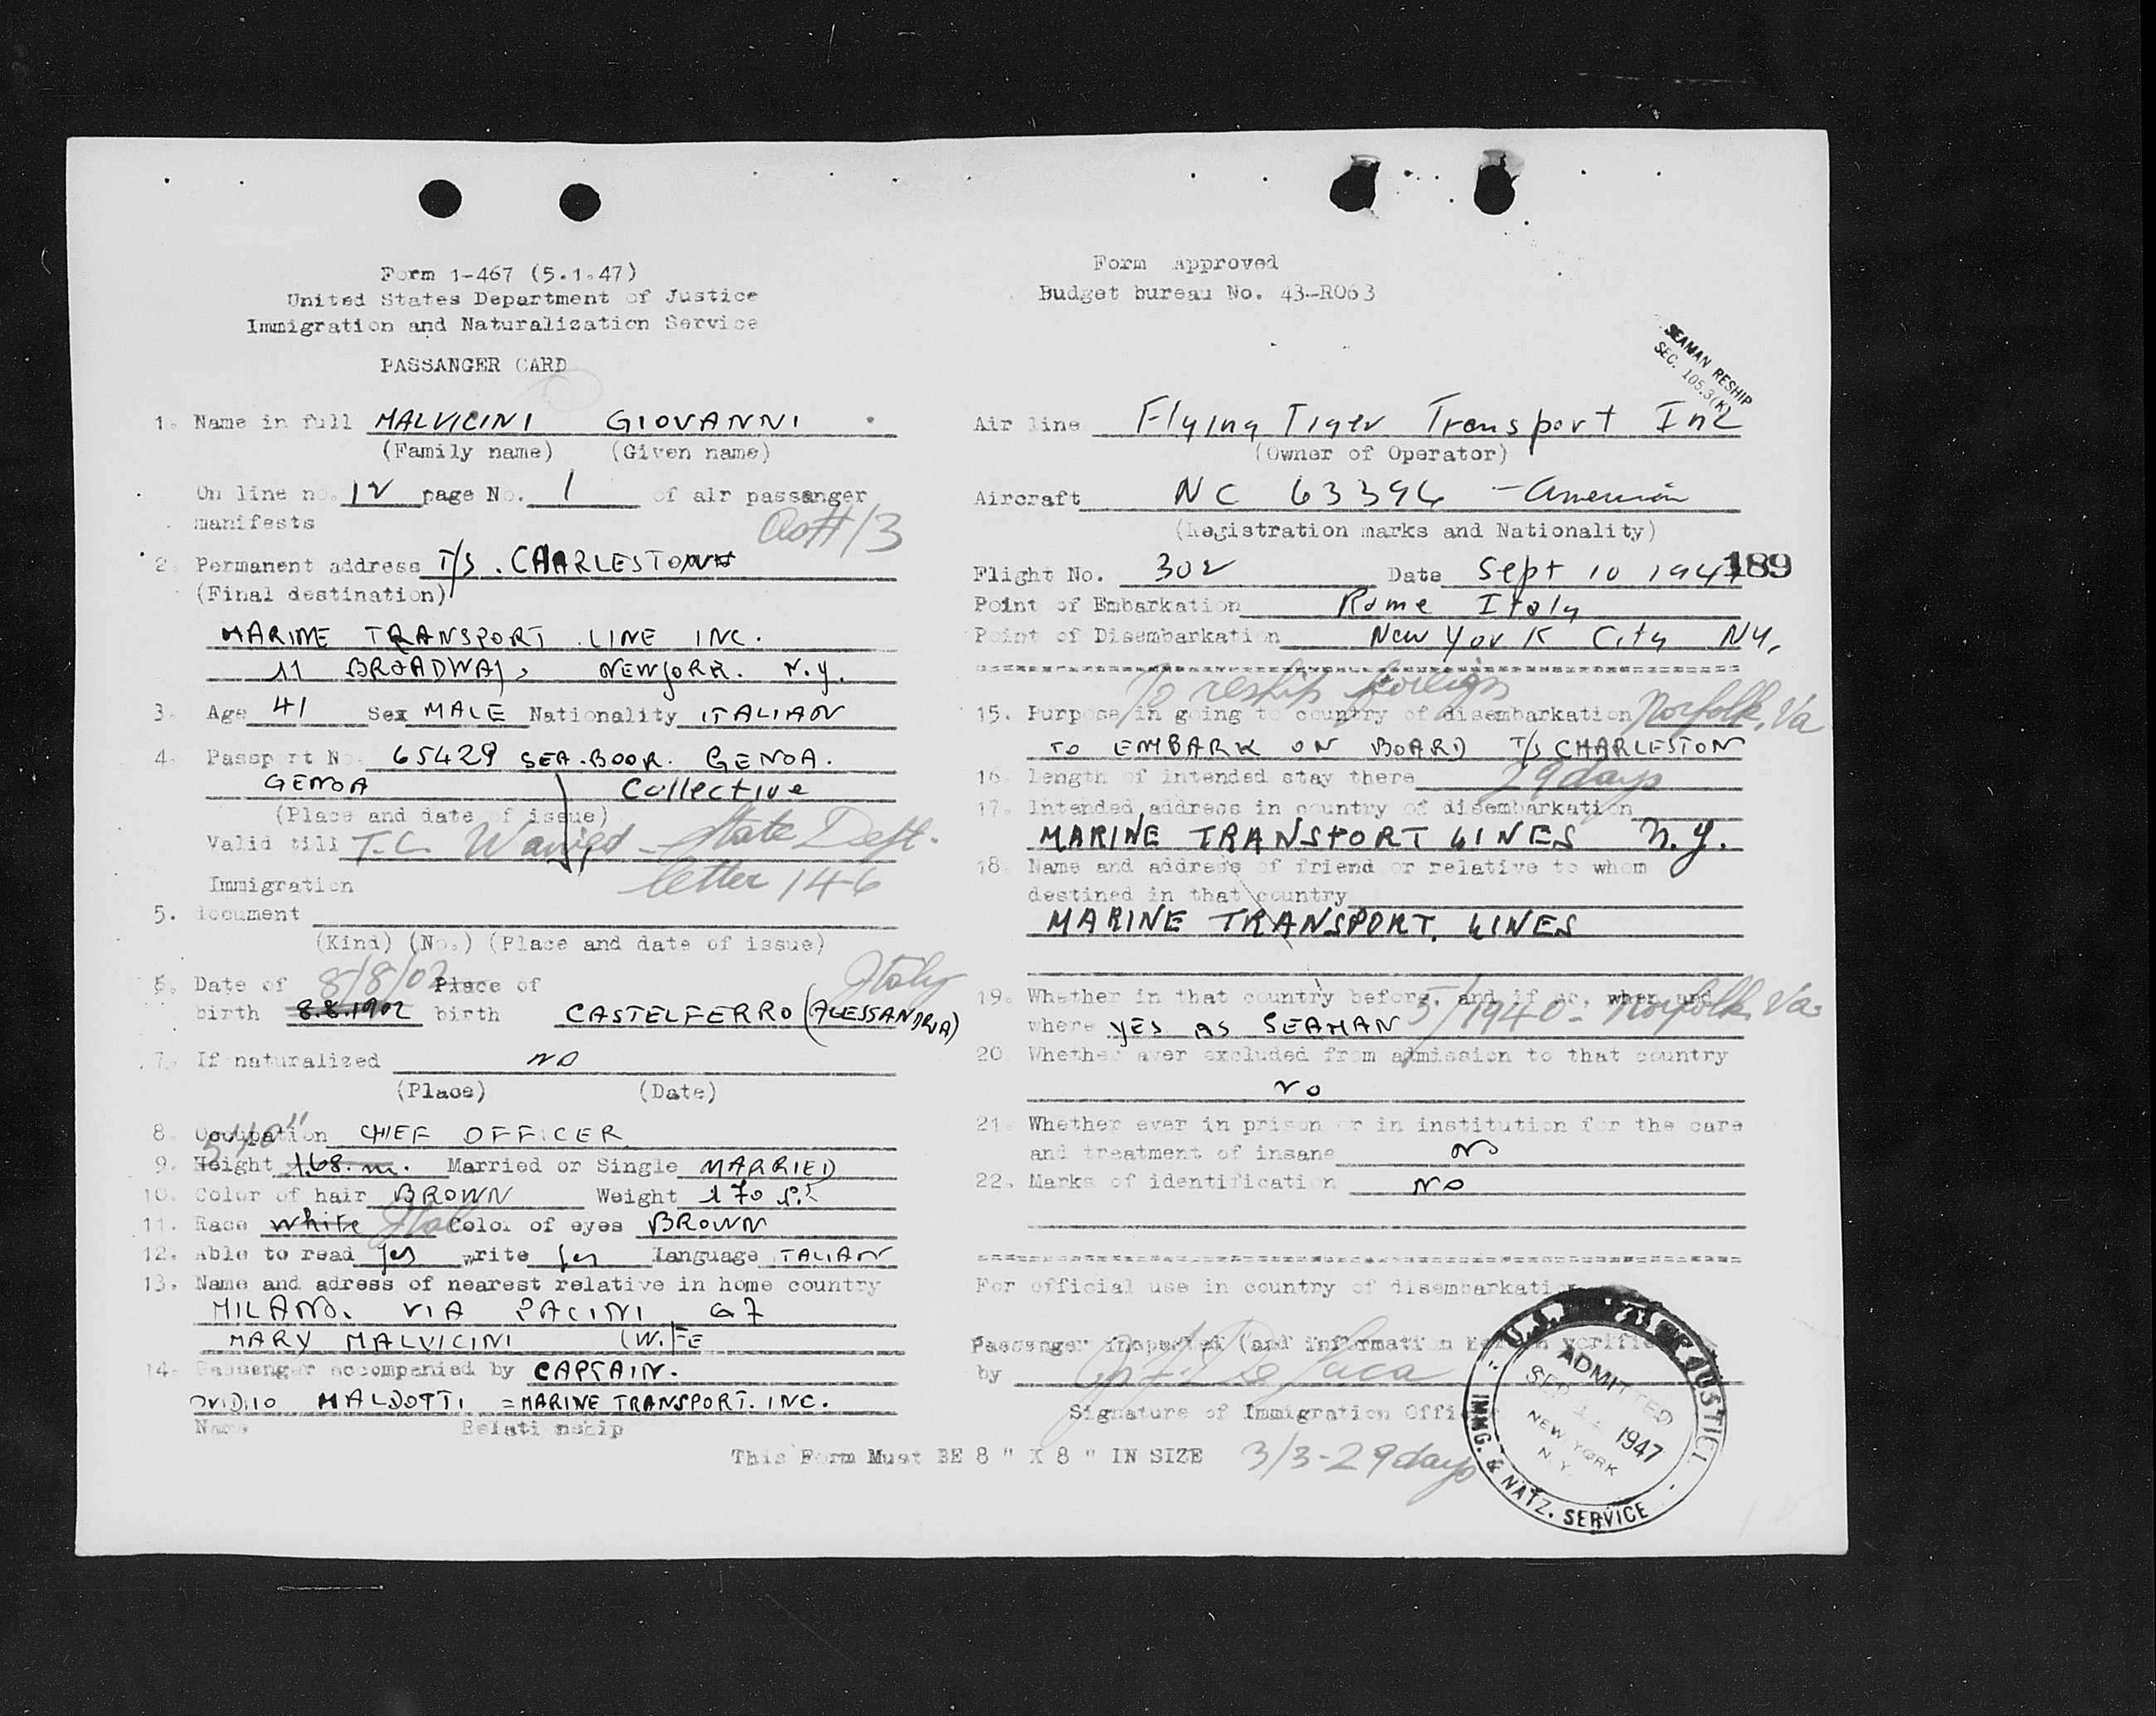 Form 1-467 (5.1.47)
United States Department of Justice
Immigration and Naturalization Service
PASSANGER CARD
1. Name in full MALVICINI GIOVANNI
(Family name) (Given name)
On line no. 12 page No. 1 of air passanger
manifests
2. Permanent address T/S. CHARLESTOWN
(Final destination)
MARINE TRANSPORT LINE INC.
11 BROADWAY, NEWYORK. N.Y.
3. Age 41 Sex MALE Nationality ITALIAN
4. Passport No. 65429 SEA.BOOK. GENOA.
GENOA Collective
(Place and date of issue)
Valid till T.C. Waived - State Dept.
letter 146
Immigration
5. document
(Kind) (No.) (Place and date of issue)
Italy
6. Date of 8/8/02 Place of
birth 8.8.1902 birth CASTELFERRO (ALESSANDRIA)
7. If naturalized NO
(Place) (Date)
8. Occupation CHIEF OFFICER
9. Height 1.68. m. Married or Single MARRIED
10. Color of hair BROWN Weight 170
11. Race White Ital Color of eyes BROWN
12. Able to read yes write yes language ITALIAN
13. Name and adress of nearest relative in home country
MILANO. VIA PACINI 67
MARY MALVICINI (WIFE
14. Passenger accompanied by CAPTAIN.
OVIDIO MALDOTTI = MARINE TRANSPORT. INC.
Name Relationship
This Form Must BE 8 " X 8 " IN SIZE
Form Approved
Budget bureau No. 43-R063
SEAMAN RESHIP
SEC. 105.3(K)
Air line Flying Tiger Transport Inc
(Owner of Operator)
Aircraft NC 63396 - American
(Registration marks and Nationality)
189
Flight No. 302 Date Sept 10 1947
Point of Embarkation Rome Italy
Point of Disembarkation New York City NY,
To reship foreign
15. Purpose in going to country of disembarkation Norfolk, Va
TO EMBARK ON BOARD T/S CHARLESTON
16. length of intended stay there 29 days
17. Intended address in country of disembarkation
MARINE TRANSPORT LINES N.Y.
18. Name and address of friend or relative to whom
destined in that country
MARINE TRANSPORT. LINES
19. Whether in that country before, and if so, when and
where YES AS SEAMAN 5/1940 - Norfolk, Va.
20. Whether ever excluded from admission to that country
NO
21. Whether ever in prison or in institution for the care
and treatment of insane NO
22. Marks of identification NO
For official use in country of disembarkation
Passenger inspected (and information herein verified
by
Signature of Immigration Officer
3/3 - 29 days
U.S. DEPT. OF JUSTICE
ADMITTED
SEP 11 1947
NEW YORK
N.Y.
IMMG. & NATZ. SERVICE